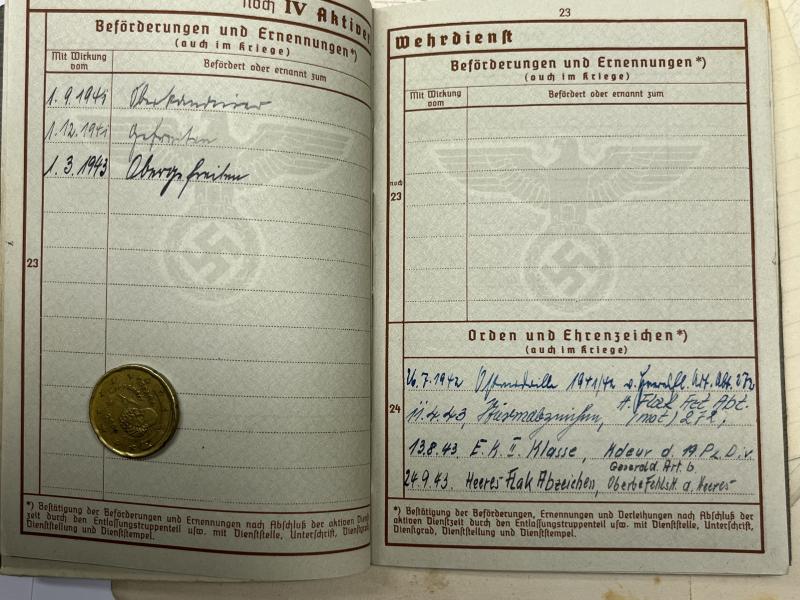 noch IV Aktiver
Beförderungen und Ernennungen*)
(auch im Kriege)
Mit Wirkung
vom
Befördert oder ernannt zum
1.9.1941 Oberkanonier
1.12.1941 Gefreiten
1.3.1943 Obergefreiten
23
*) Bestätigung der Beförderungen und Ernennungen nach Abschluß der aktiven Dienst
zeit durch den Entlassungstruppenteil usw. mit Dienststelle, Unterschrift, Dienstgrad
Dienststellung und Dienststempel.
23
Wehrdienst
Beförderungen und Ernennungen*)
(auch im Kriege)
Mit Wirkung
vom
Befördert oder ernannt zum
noch
23
Orden und Ehrenzeichen*)
(auch im Kriege)
26.7.1942 Ostmedaille 1941/42 Art. Abt. 272
H. Flak Art Abt.
11.4.43, Sturmabzeichen, (mot) 272;
24
13.8.43. E.K. II. Klasse, Kdeur d. 19 Pz. Div.
General d. Art. b.
24.9.43. Heeres Flak Abzeichen, Oberbefehlsh. d. Heeres
*) Bestätigung der Beförderungen, Ernennungen und Verleihungen nach Abschluß der
aktiven Dienstzeit durch den Entlassungstruppenteil usw. mit Dienststelle, Unterschrift,
Dienstgrad, Dienststellung und Dienststempel.